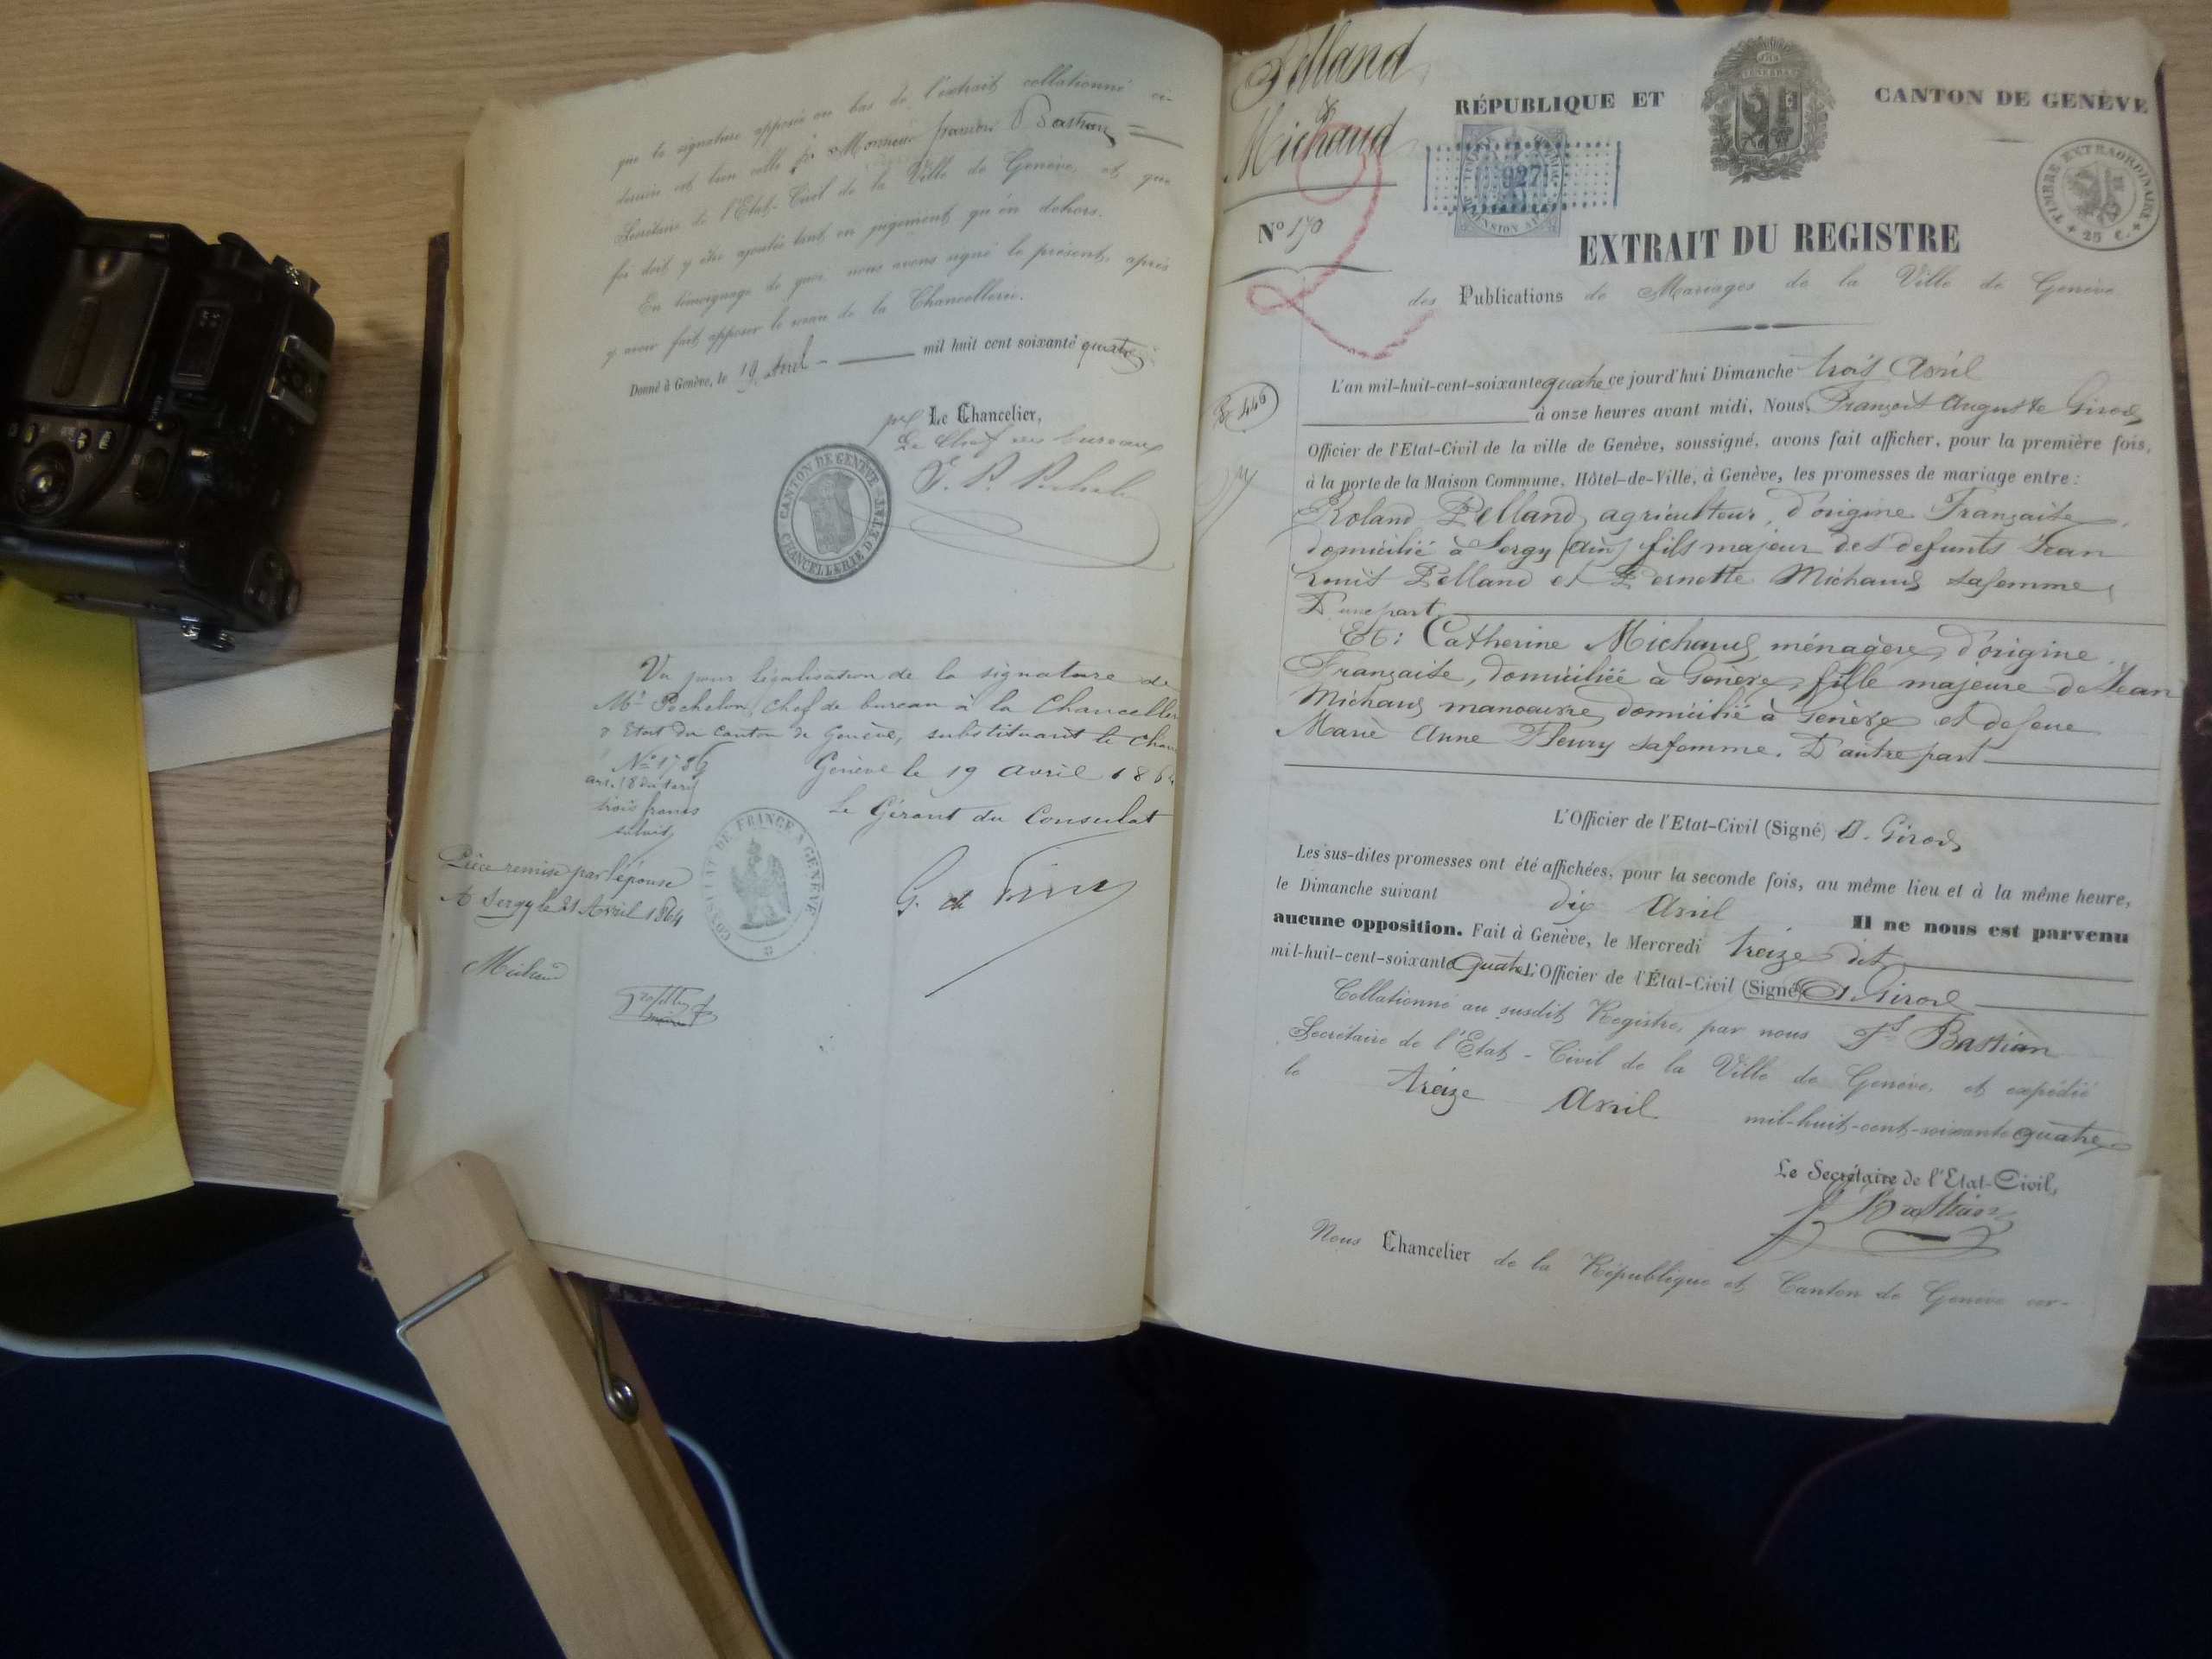 que la signature apposée au bas de l'extrait collationné ci-
dessus est bien celle de Monsieur françois Bastian
Secrétaire de l'Etat-Civil de la Ville de Genève, et que
foi doit y être ajoutée tant en jugement qu'en dehors.
En témoignage de quoi nous avons signé le présent, après
y avoir fait apposer le sceau de la Chancellerie.
Donné à Genève, le 19 Avril mil huit cent soixante quatre
Le Chancelier,
Le Chef des bureaux
CANTON DE GENÈVE
CHANCELLERIE D'ETAT
Vu pour légalisation de la signature de
Mr Pochelon, Chef de bureau à la Chancelle
d'Etat du Canton de Genève, substituant le Chan
No 1786
art. 18 du tarif
trois francs
Genève le 19 avril 186
Le Gérant du Consulat
CONSULAT DE FRANCE A GENÈVE
Pièce remise par l'épouse
A Sergy le 21 Avril 1864
Michaud
Pelland
&
Michaud
No 170
RÉPUBLIQUE ET CANTON DE GENÈVE
927
TIMBRE EXTRAORDINAIRE
25 C.
EXTRAIT DU REGISTRE
des Publications de Mariages de la Ville de Genève
446
L'an mil-huit-cent-soixante quatre ce jourd'hui Dimanche trois Avril
à onze heures avant midi, Nous, François Auguste Girod
Officier de l'Etat-Civil de la ville de Genève, soussigné, avons fait afficher, pour la première fois,
à la porte de la Maison Commune, Hôtel-de-Ville, à Genève, les promesses de mariage entre:
Roland Pelland, agriculteur, d'origine Française,
domicilié à Sergy (Ain) fils majeur des defunts Jean
Louis Pelland et Pernette Michaud sa femme,
D'une part
Et: Catherine Michaud, ménagère, d'origine
Française, domiciliée à Genève, fille majeure de Jean
Michaud manoeuvre, domicilié à Genève et de feue
Marie Anne Fleury sa femme. D'autre part
L'Officier de l'Etat-Civil (Signé) A. Girod
Les sus-dites promesses ont été affichées, pour la seconde fois, au même lieu et à la même heure,
le Dimanche suivant dix Avril Il ne nous est parvenu
aucune opposition. Fait à Genève, le Mercredi treize dit
mil-huit-cent-soixante quatre L'Officier de l'État-Civil (Signé) A. Girod
Collationné au susdit Registre, par nous Fs Bastian
Secrétaire de l'Etat-Civil de la Ville de Genève, et expédié
le treize Avril mil-huit-cent-soixante quatre
Le Secrétaire de l'Etat-Civil,
F Bastian
Nous Chancelier de la République et Canton de Genève cer-